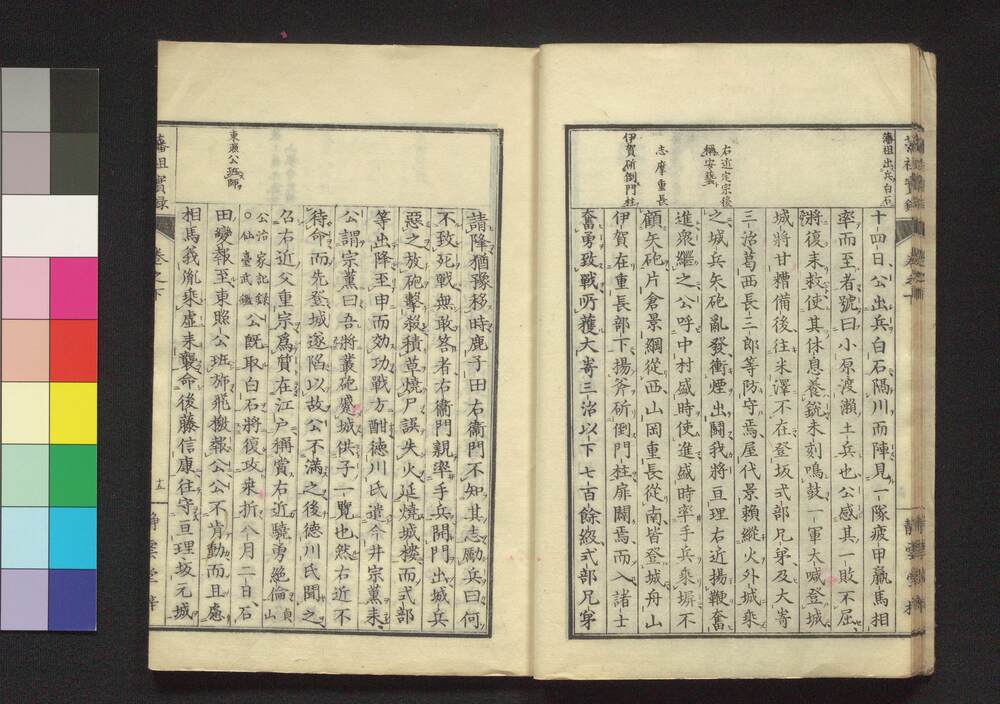 藩祖出兵白石
右近定宗後
稱安藝
志摩重長
伊賀斫倒門柱
十四日公出兵白石隅川而陣見一隊疲甲羸馬相
率而至者號曰小原渡瀬土兵也公感其一敗不屈
將復來救使其休息養銳未刻鳴鼓一軍大喊登城
城將甘糟備後往米澤不在登坂式部兄弟及大嵜
三治葛西長三郎等防守焉屋代景賴縱火外城乘
之城兵矢砲亂發衝煙出鬪我將亘理右近揚鞭奮
進衆繼之公呼中村盛時使進盛時率手兵乘塀不
顧矢砲片倉景綱從西山岡重長從南皆登城舟山
伊賀在重長部下揚斧斫倒門柱扉闢焉而入諸士
奮勇致戰所獲大嵜三治以下七百餘級式部兄弟
東照公班師
請降猶豫移時鹿子田右衞門不知其志勵兵曰何
不致死戰無敢答者右衞門親率手兵開門出城兵
惡之放砲擊殺積草燒尸誤失火延燒城樓而式部
等出降至申而効功戰方酣德川氏遣今井宗薫来
公謂宗薫曰吾將叢砲蹙城供子一覽也然右近不
待命而先登城遂陷以故公不滿之後德川氏聞之
召右近父重宗爲質在江戶稱賞右近驍勇絶倫 貞山
公治家記錄
○仙臺武鑑 公既取白石將復攻桒折八月二日石
田變報至東照公班師飛檄報公公不肯動而且慮
相馬義胤乘虛来襲命後藤信康往守亘理坂元城
藩祖實錄
卷之下
十五
靜雲堂梓